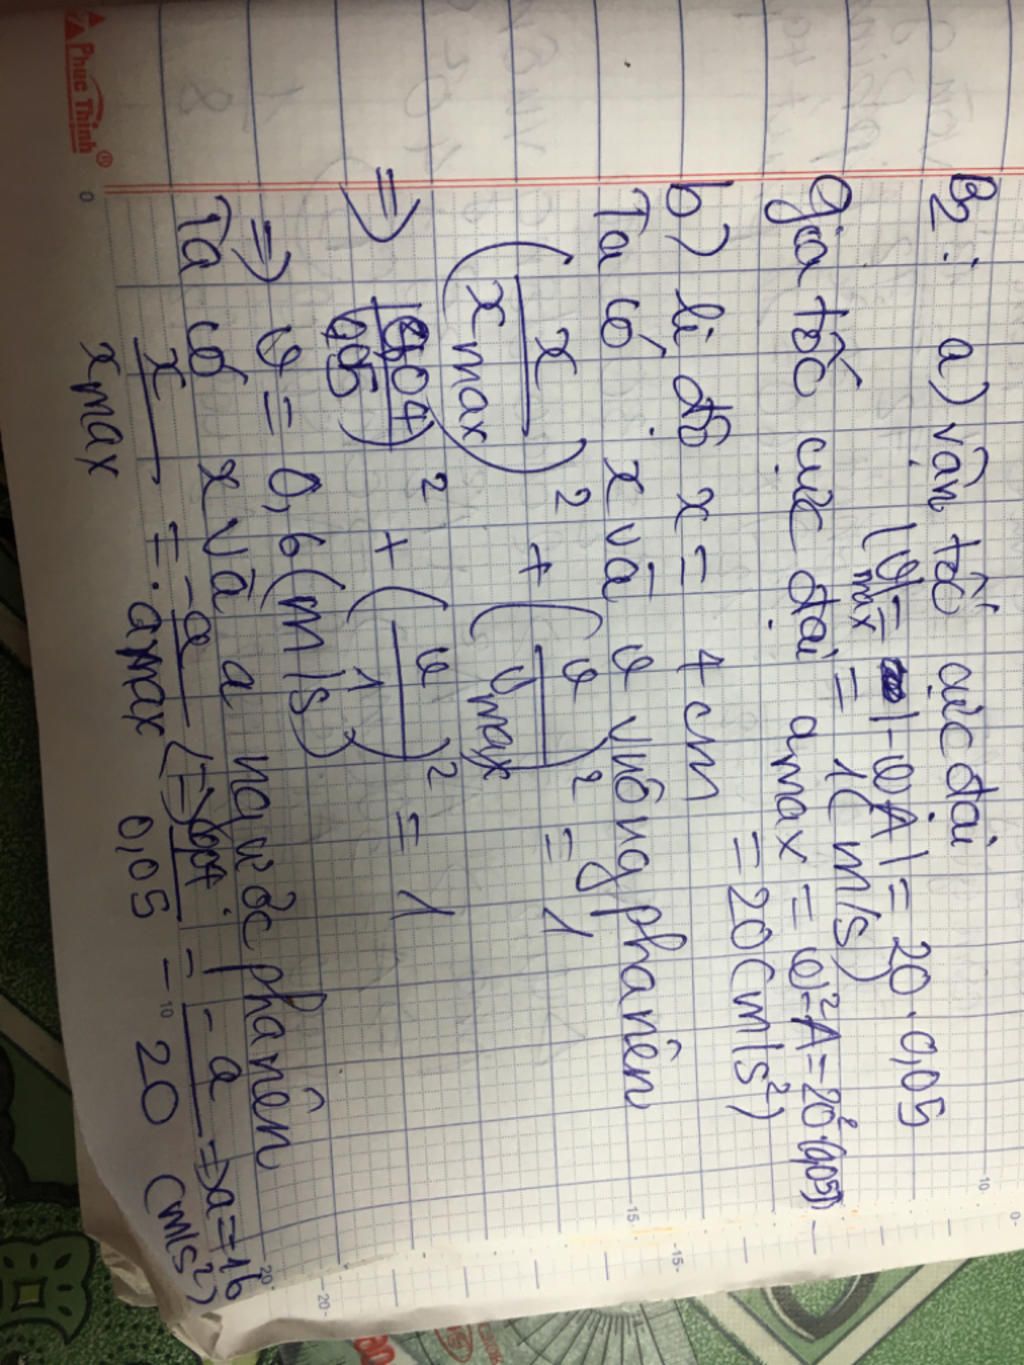 B2: a) vận tốc cực đại
|v max| = |-ωA| = 20.0,05
= 1(m/s)
gia tốc cực đại amax = ω²A = 20².0,05
= 20(m/s²)
b) li độ x = 4cm
Ta có x và v vuông phanên
(x/x max)² + (v/v max)² = 1
=> (0,04/0,05)² + (v/1)² = 1
=> v = 0,6(m/s)
Ta có x và a ngược phanên
x/x max = -a/a max <=> 0,04/0,05 = -a/20 => a = -16 (m/s²)
Phuc Thinh®
0
10
15
20